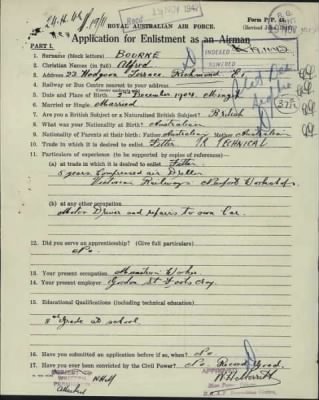 Recd 25 NOV 1942
ROYAL AUSTRALIAN AIR FORCE.
Form P/P. 44.
Application for Enlistment as an Airman
INDEXED
PART I.
1. Surname (block letters) BOURKE
2. Christian Names (in full) Alfred
3. Address 23 Hodgson Terrace Richmond
Railway or Bus Centre nearest to your address
5. Date and Place of Birth December 1904
6. Married or Single Married
7. Are you a British Subject or a Naturalised British Subject? British
8. What was your Nationality at Birth? Australian
9. Nationality of Parents at their birth: Father Australian Mother Australian
10. Trade in which it is desired to enlist. Fitter TECHNICAL
11. Particulars of experience (to be supported by copies of references)
(a) at trade in which it is desired to enlist Fitter
5 years Compressed air Driller
Victorian Railways Newport Workshops
(b) at any other occupation
Motor Driver and repairs to own Car.
12. Did you serve an apprenticeship? (Give full particulars)
No.
13. Your present occupation. Munition Worker
14. Your present employer. Gordon St Footscray.
15. Educational Qualifications (including technical education).
Grade at school
16. Have you submitted an application before if so, when? No
17. Have you ever been convicted by the Civil Power? No